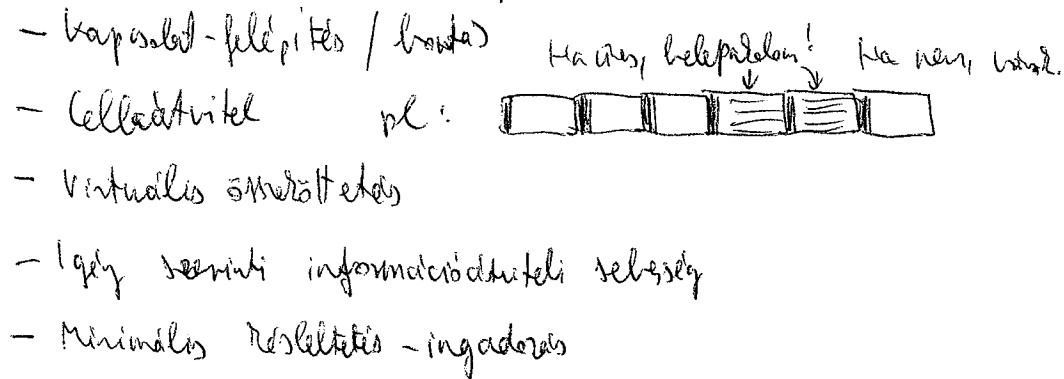 - Kapcsolat-felépítés / bontás
Ha üres, belepakolom! Ha nem, várok.
- Cellaátvitel pl:
- Virtuális összeköttetés
- Igény szerinti információátviteli sebesség
- Minimális késleltetés-ingadozás